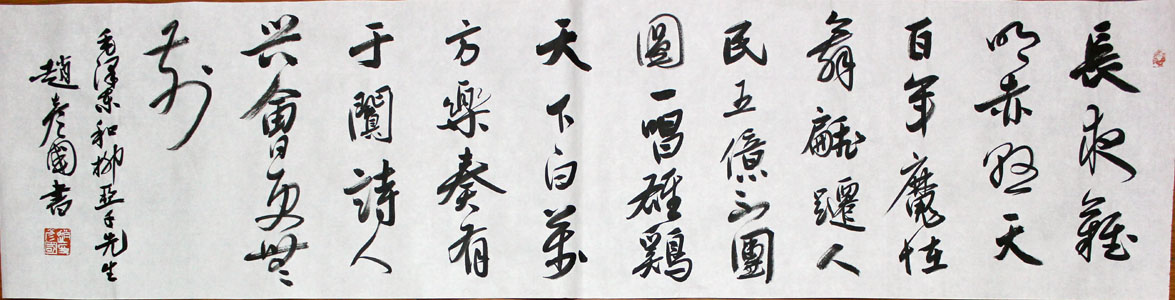 長夜難
明赤縣天
百年魔怪
舞翩躚人
民五億不團
圓一唱雄鷄
天下白萬
方樂奏有
于闐詩人
兴會更無
前
毛澤東和柳亞子先生
趙彥國書